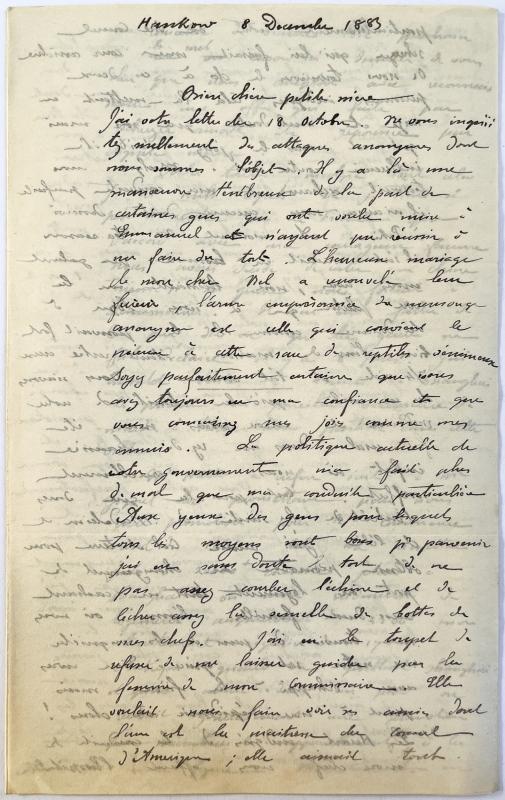 Hankow 8 Decembre 1883
Bien chère petite mère
J'ai votre lettre du 18 octobre. Ne vous inquié
tez nullement des attaques anonymes dont
nous sommes l'objet. Il y a là une
manoeuvre ténébreuse de la part de
certaines gens qui ont voulu nuire à
Emmanuel et n'ayant pu réussir à
me faire du tort. L'heureux mariage
de mon cher a renouvelé leur
fureur, l'arme empoisonnée du mensonge
anonyme est celle qui convient le
mieux à cette race de reptiles venimeux
Soyez parfaitement certaine que vous
avez toujours eu ma confiance et que
vous connaissez mes joies comme mes
ennuis. La politique actuelle de
notre gouvernement m'a fait plus
de mal que ma conduite particulière
Aux yeux des gens pour lesquels
tous les moyens sont bons pr parvenir
j'ai eu sans doute tort de ne
pas assez courber l'échine et de
lécher assez les semelles de bottes de
mes chefs. J'ai eu le toupet de
refuser de me laisser guider par la
femme de mon commissaire. Elle
voulait nous faire voir ses amies dont
l'une est la maitresse du consul
d'Amérique ; elle aimait tout